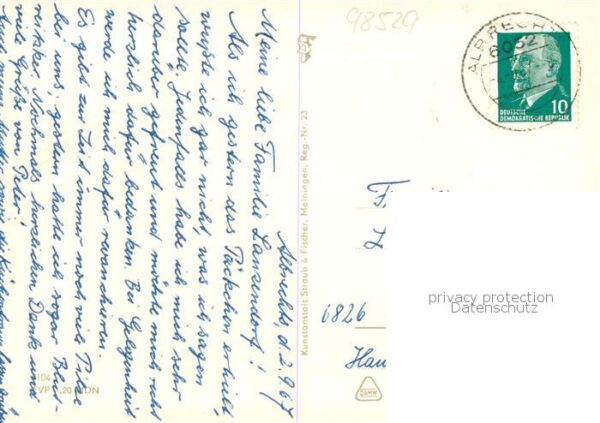 Albrechts, d. 2.9.67
Meine liebe Familie Lanzendorf!
Als ich gestern das Päckchen erhielt,
wußte ich gar nicht, was ich sagen
sollte. Jedenfalls habe ich mich sehr
darüber gefreut und möchte mich recht
herzlich dafür bedanken. Bei Gelegenheit
werde ich mich dafür revanchieren.
Es gibt zur Zeit immer noch viele Pilze
bei uns, gestern hatte ich sogar
Nochmals herzlichen Dank und
viele Grüße von Peter!
Kunstanstalt Straub & Fischer, Meiningen, Reg.-Nr. 23
98529
ALBRECHTS
6052
10
DEUTSCHE
DEMOKRATISCHE REPUBLIK
F
L
6826
privacy protection
Datenschutz